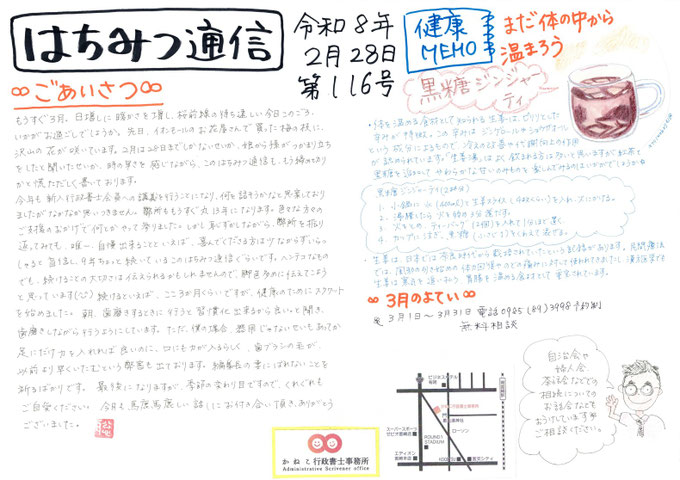 はちみつ通信
令和8年
2月28日
第116号
∞ごあいさつ∞
もうすぐ3月。日増しに暖かさを増し、桜前線の待ち遠しい今日このごろ、
いかがお過ごしでしょうか。先日、イオンモールのお花屋さんで買った梅の枝に、
沢山の花が咲いています。2月は28日までしかないせいか、
をしたと聞いたせいか、時の早さを感じながら、このはちみつ通信も、もう締め切り
かと慌ただしく書いております。
今年も新人行政書士会員への講義を行うことになり、何を話そうかなと思案しており
ましたがなかなか思いつきません。弊所ももうすぐ丸13年になります。色々な方々の
ご支援のおかげで何とかやって参りました。しかし恥ずかしながら、弊所を振り
返ってみても、唯一、自慢出来ることといえば、喜んでくださる方は少なからずいらっ
しゃると自信し9年ちょっと続いているこのはちみつ通信ぐらいです。ヘンテコなもの
でも、続けることの大切さは伝えられるかもしれませんので、脚色多めに伝えてこよう
と思っています(笑) 続けるといえば、ここ3か月くらいですが、健康のためにスクワート
を始めました。朝、歯磨きするときに行うと習慣化出来るから良いと聞き、
歯磨きしながら行うようにしています。ただ、僕の場合、器用じゃないせいもあってか
足にだけ力を入れれば良いのに、口にも力が入るらしく、歯ブラシの毛が、
以前より早くいたむという弊害も出ております。編集長の妻にばれないことを
祈るばかりです。最後になりますが、季節の変わり目ですので、くれぐれも
ご自愛ください。今月も馬鹿馬鹿しい話しにお付き合い頂き、ありがとう
ございました。
健康
MEMO
まだ体の中から
温まろう
黒糖ジンジャー
ティ
・体を温める食材として知られる生姜は、ピリッとした
辛みが特徴。この辛みは、ジンゲロールやショウガオール
という成分によるもので、冷えの改善や代謝向上の作用
が認められています。"生姜湯"はよく飲まれる方は多いと思いますが紅茶と
黒糖を混ぜて、やわらかな甘いのみものを楽しんでみるのはいかがでしょうか
黒糖ジンジャーティ(2杯分)
1. 小鍋に水(400ml)と生姜スライス(4枚くらい)を入れ、火にかける。
2. 沸騰したら、火を弱め3分煮だす。
3. 火をとめ、ティーバッグ(2個)を入れて1分ほど置く。
4. カップにそそぎ、黒糖(小さじ2)をくわえて完成。
・生姜は、日本では
生姜は寒気を追い払う、胃腸を温める食材として重宝されています。
∞3月のよてい∞
3月1日〜3月31日 電話0985(89)3998予約制
無料相談
自治会や
婦人会
茶話会などでの
相続についての
お話会なども
おうけしています
ご相談ください。
かねこ行政書士事務所
Administrative Scrivener office
ビジネスホテル
かねこ行政書士事務所
スーパースポーツ
ゼビオ宮崎店
ROUND1
STADIUM
ローソン
エディオン
宮崎本店
600CC
宮交シティ